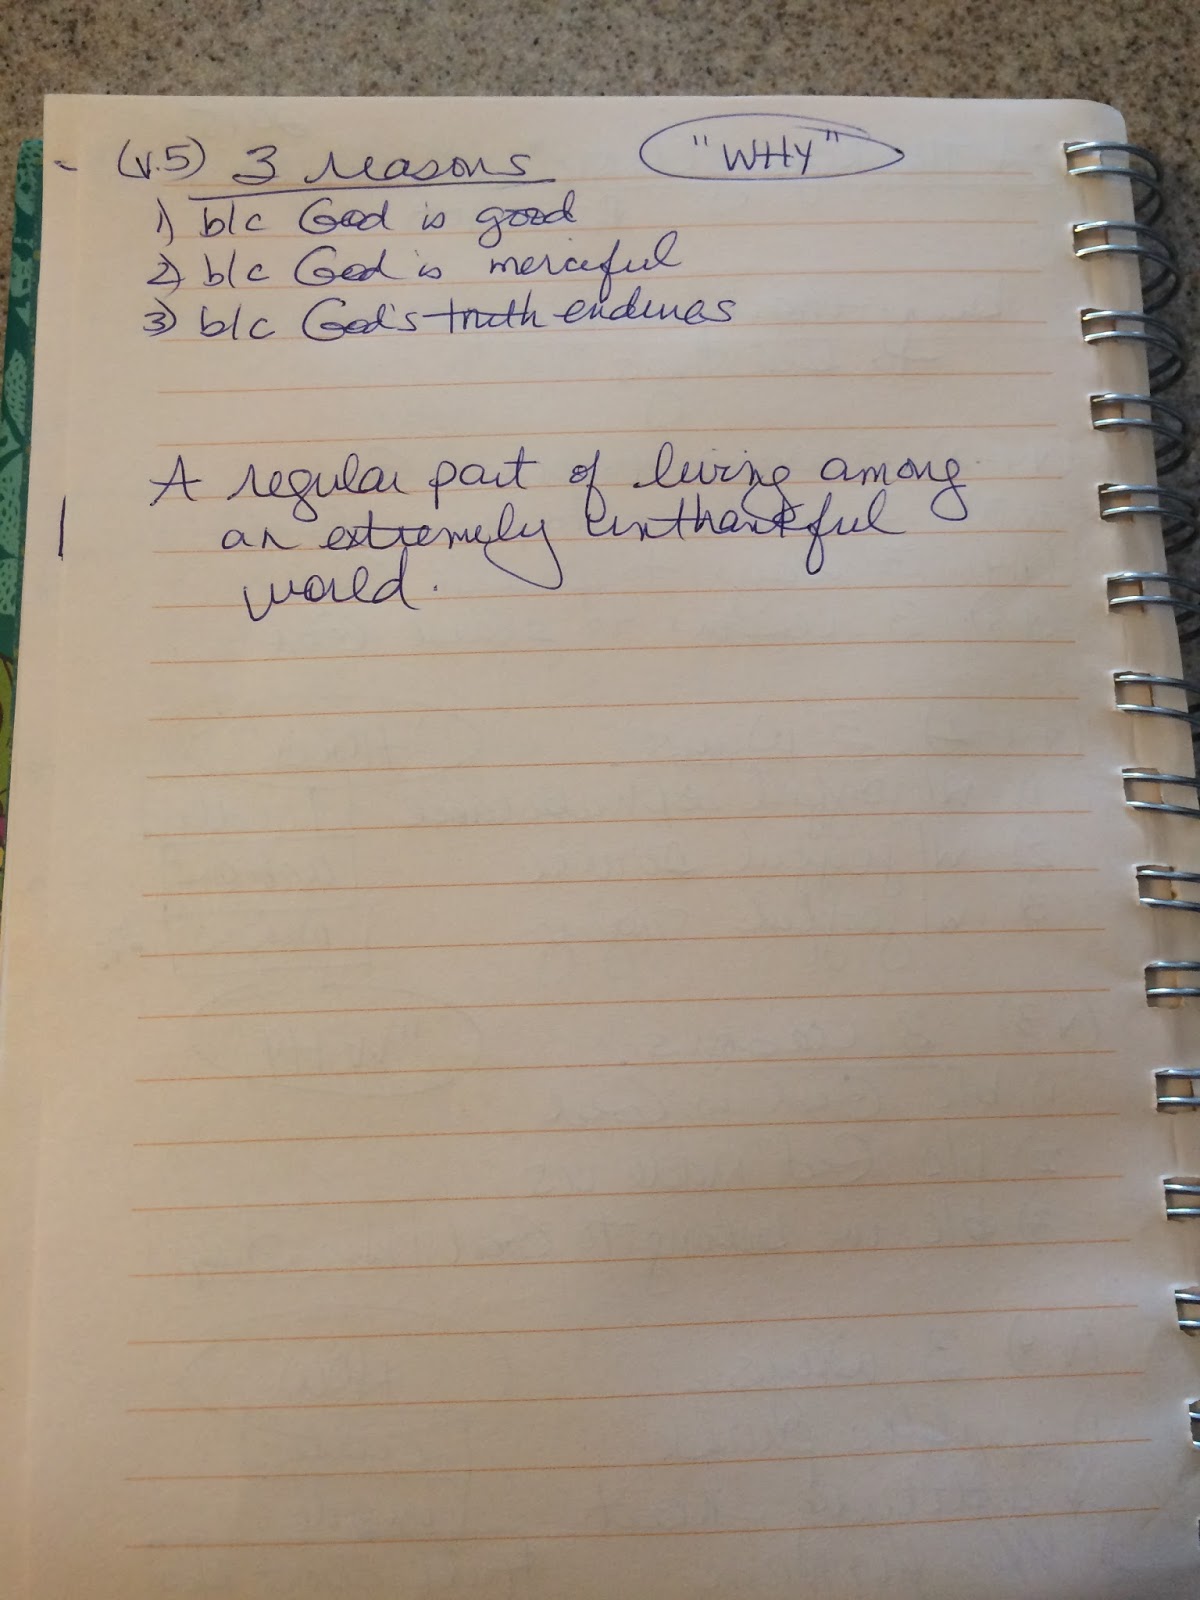 - (v.5) 3 reasons "WHY"
1) b/c God is good
2) b/c God is merciful
3) b/c God's truth endures
A regular part of living among
an extremely unthankful
world.